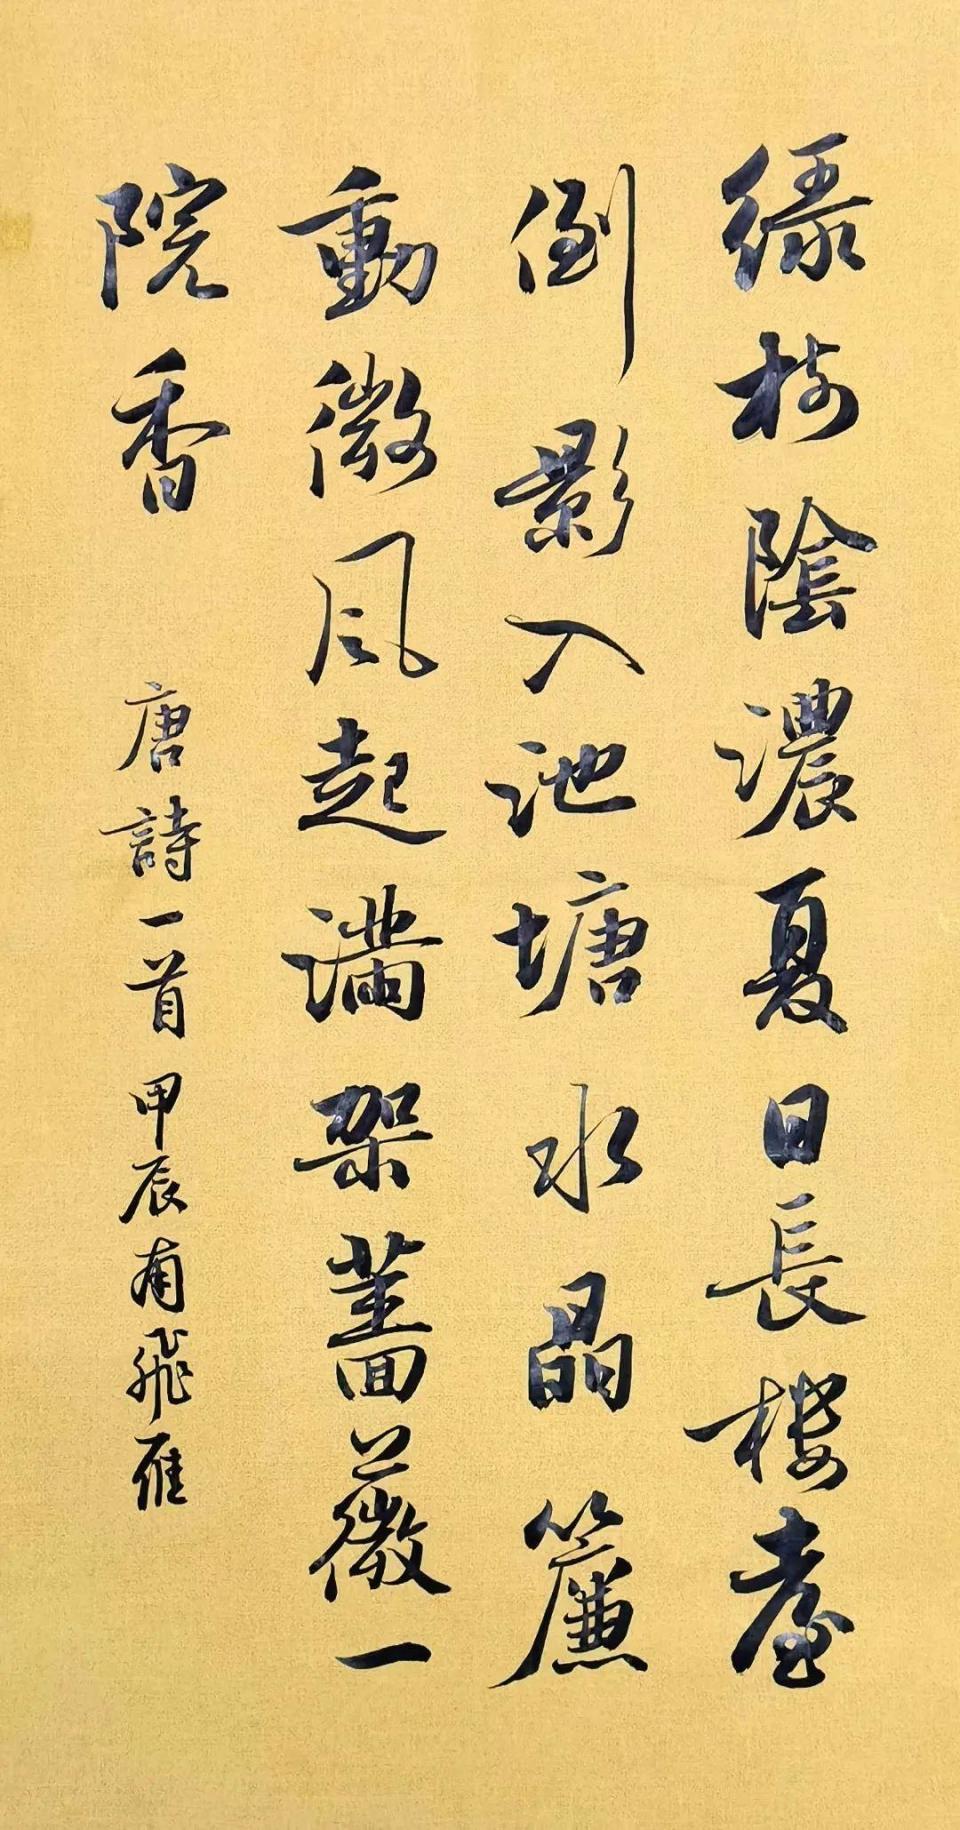 緑樹陰濃夏日長樓臺
倒影入池塘水晶簾
動微風起滿架薔薇一
院香
唐詩一首甲辰甫飛雁